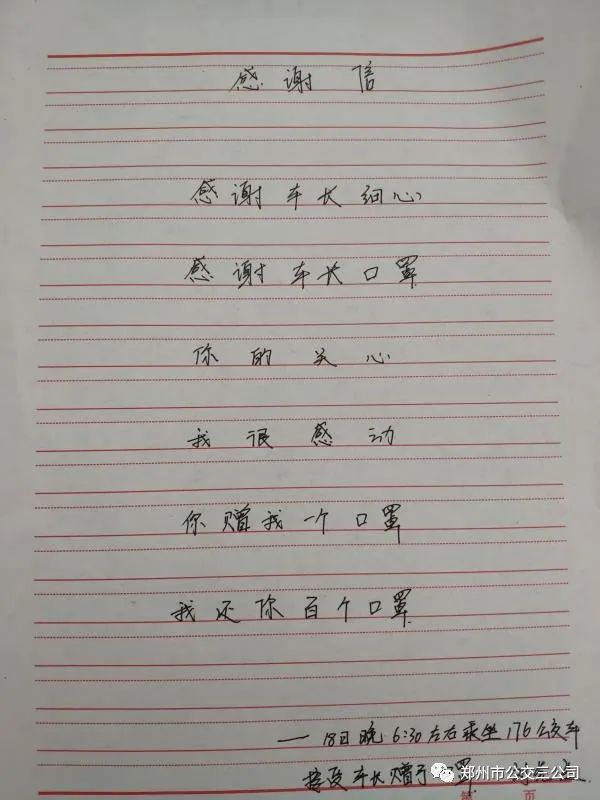 感谢信
感谢车长细心
感谢车长口罩
你的关心
我很感动
你赠我一个口罩
我还你百个口罩
—18日晚6:30左右乘坐176公交车
接受车长赠予口罩
郑州市公交三公司
第 页